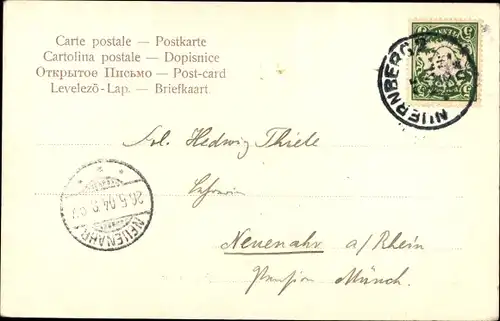 Carte postale — Postkarte
Cartolina postale — Dopisnice
Открытое Письмо — Post-card
Levelező-Lap. — Briefkaart
NUERNBERG 2
Hedwig Thiele
Neuenahr a/Rhein
Pension Münch.
26.5.04
NEUENAHR